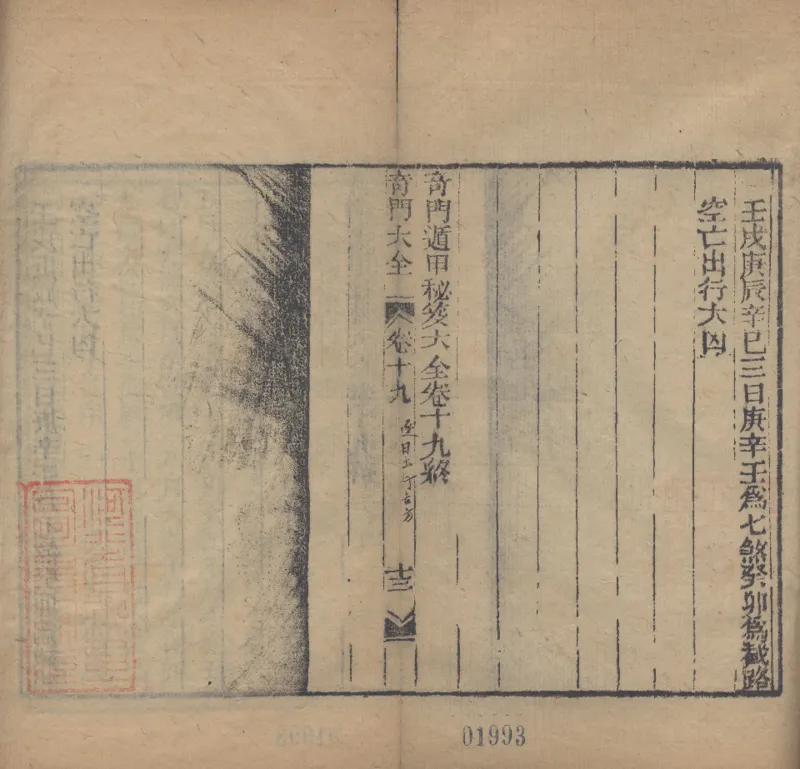 壬戌庚辰辛巳三日庚辛壬爲七煞癸卯爲截路
空亡出行大凶
奇門遁甲秘笈大全卷十九終
奇門大全
卷十九
十三
01993